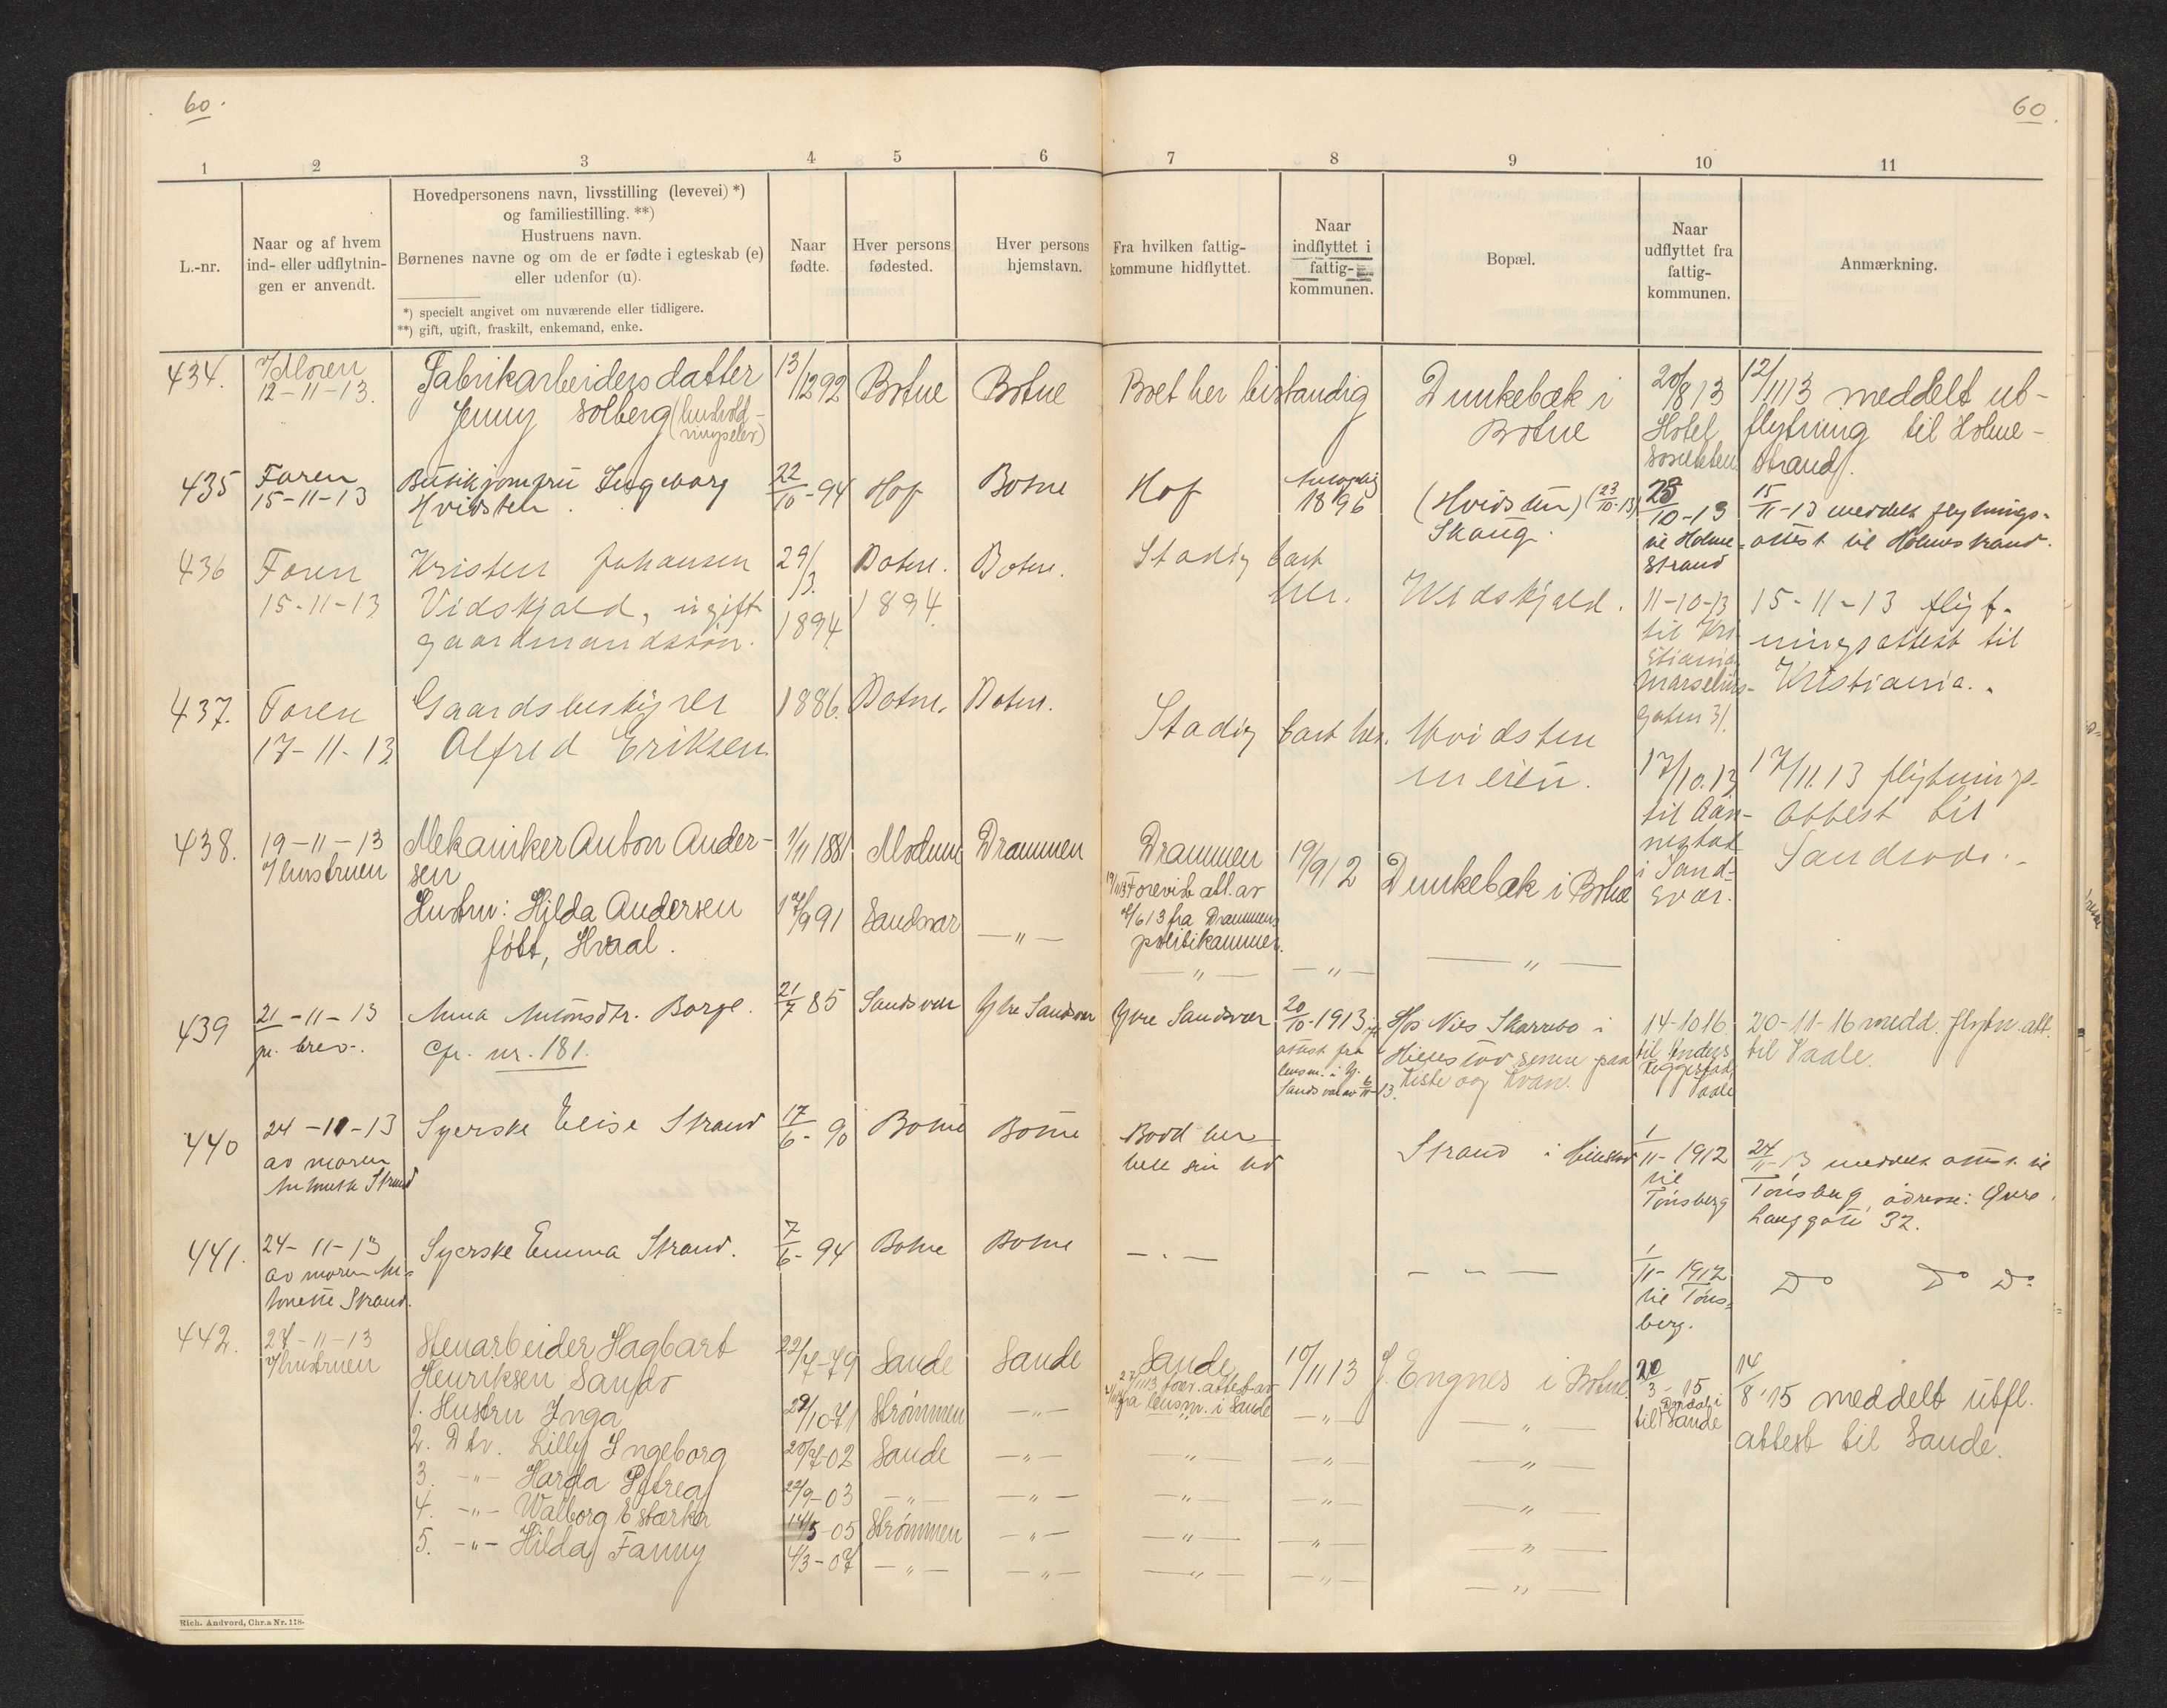 60.
60.
1
2
3
4
5
6
7
8
9
10
11
L.-nr.
Naar og af hvem
ind- eller udflytnin-
gen er anvendt.
Hovedpersonens navn, livsstilling (levevei) *)
og familiestilling. **)
Hustruens navn.
Børnenes navne og om de er fødte i egteskab (e)
eller udenfor (u).
*) specielt angivet om nuværende eller tidligere.
**) gift, ugift, fraskilt, enkemand, enke.
Naar
fødte.
Hver persons
fødested.
Hver persons
hjemstavn.
Fra hvilken fattig-
kommune hidflyttet.
Naar
indflyttet i
fattig-
kommunen.
Bopæl.
Naar
udflyttet fra
fattig-
kommunen.
Anmærkning.
434.
Moren
12-11-13.
Fabrikarbeidersdatter
Jenny Solberg (hushold-
ningselev)
13/12 92
Botne
Botne
Boet her bistandig
Dunkebæk i
Botne
20/8 13
Hotel
Societeten
12/11 13 meddelt ut-
flytning til Holme-
strand.
435
Faren
15-11-13
Butikjomfru Ingeborg
Hvidsten.
22/10-94
Hof
Botne
Hof
1896
(Hvidsten) (23/10-13)
Skaug.
23/10-13
til Holme-
strand
15/11-13 meddelt flytnings-
attest til Holmestrand.
436
Faren
15-11-13
Kristen Johansen
Vidskjold, ugift
gaardmandssøn.
29/3.
1894
Botne.
1894.
Botne.
Stadig bort
her.
Vidskjold.
11-10-13
til Kri
stiania
Marselius-
gaten 31.
15-11-13 flyt-
ningsattest til
Kristiania.
437.
Faren
17-11-13
Gaardsbestyrer
Alfred Eriksen.
1886.
Botne.
Botne.
Stadig bort her.
Hvidsten
17/10.13
til
i Sand-
svær.
17/11.13 flytnings-
attest til
438.
19-11-13
Hustruen
Mekaniker Anton Ander-
sen
Hustru: Hilda Andersen
født, Hvaal.
1/11 1881
17/9 91
Modum
Sandsvær
Drammen
—"—
Drammen
19/11 13 Forevist att. av
4/6 13 fra Drammens
politikammer.
—"—
19/9 12
—"—
Dunkebæk i Botne
—"—
439
21-11-13
pr. brev.
Anna Antonsdtr. Borge.
Cfr. nr. 181.
21/7 85
Sandsvær
Ytre Sandsvær
Ytre Sandsvær
20/10-1913
attest fra
lensm. i Y.
Sandsvær av 6/11-13.
Hos Nils Skarrebo i
Hillestad senere paa
Liste og Kvan.
14-10 16
til Anders
Reggestad
Vaale
20-11-16 medd. flytn. att.
til Vaale.
440
24-11-13
av moren
Antonette Strand
Syerske Elise Strand
17/6-90
Botne
Botne
Bodd her
hele sin tid
Strand i Hillestad
1/11-1912
til
Tønsberg
24/11-13 meddelt attest til
Tønsberg, adresse: Øvre
Langgate 32.
441.
24-11-13
av moren An-
tonette Strand.
Syerske Emma Strand.
7/6-94
Botne
Botne
— . —
— - —
1/11-1912
til Tøns-
berg.
Do Do Do
442.
27-11-13
Hustruen
Stenarbeider Hagbart
Henriksen Sandø
1. Hustru Inga
2. Dtr. Lilly Ingeborg
3. —"— Harda Petrea
4. —"— Walborg Estarka
5. —"— Hilda Fanny
22/7-79
29/10-71
20/7-02
22/9-03
14/5-05
4/3-07
Sande
Strømmen
Sande
—"—
Strømmen
—"—
Sande
—"—
—"—
—"—
—"—
—"—
Sande
27/11 13 forev. attest av
fra lensm. i Sande
—"—
—"—
—"—
—"—
10/11 13
—"—
—"—
—"—
—"—
—"—
Engnes i Botne
—"—
—"—
—"—
—"—
—"—
20/3-15
til Sande
14/8 '15 meddelt utfl.
attest til Sande.
Rich. Andvord, Chr.a Nr. 118.